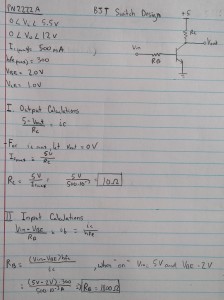 PN2222A
BJT Switch Design
0 < Vo < 5.5V
0 < Vin < 12V
Ic(max) = 500mA
hFE(max) = 300
VBE = 2.0V
VCE = 1.0V
+5
Rc
Vout
Vin
RB
I. Output Calculations
5-Vout / Rc = ic
- For ic max, let Vout = 0V
Ic(max) = 5V / Rc
Rc = 5V / Icmax = 5V / 500·10⁻³A = 10Ω
II Input Calculations
Vin-VBE / RB = ib = ic / hFE
RB = (Vin-VBE)hFE / ic , when "on" Vin = 5V and VBE = 2V
= (5V-2V)·300 / 500·10⁻³A => RB = 1800Ω